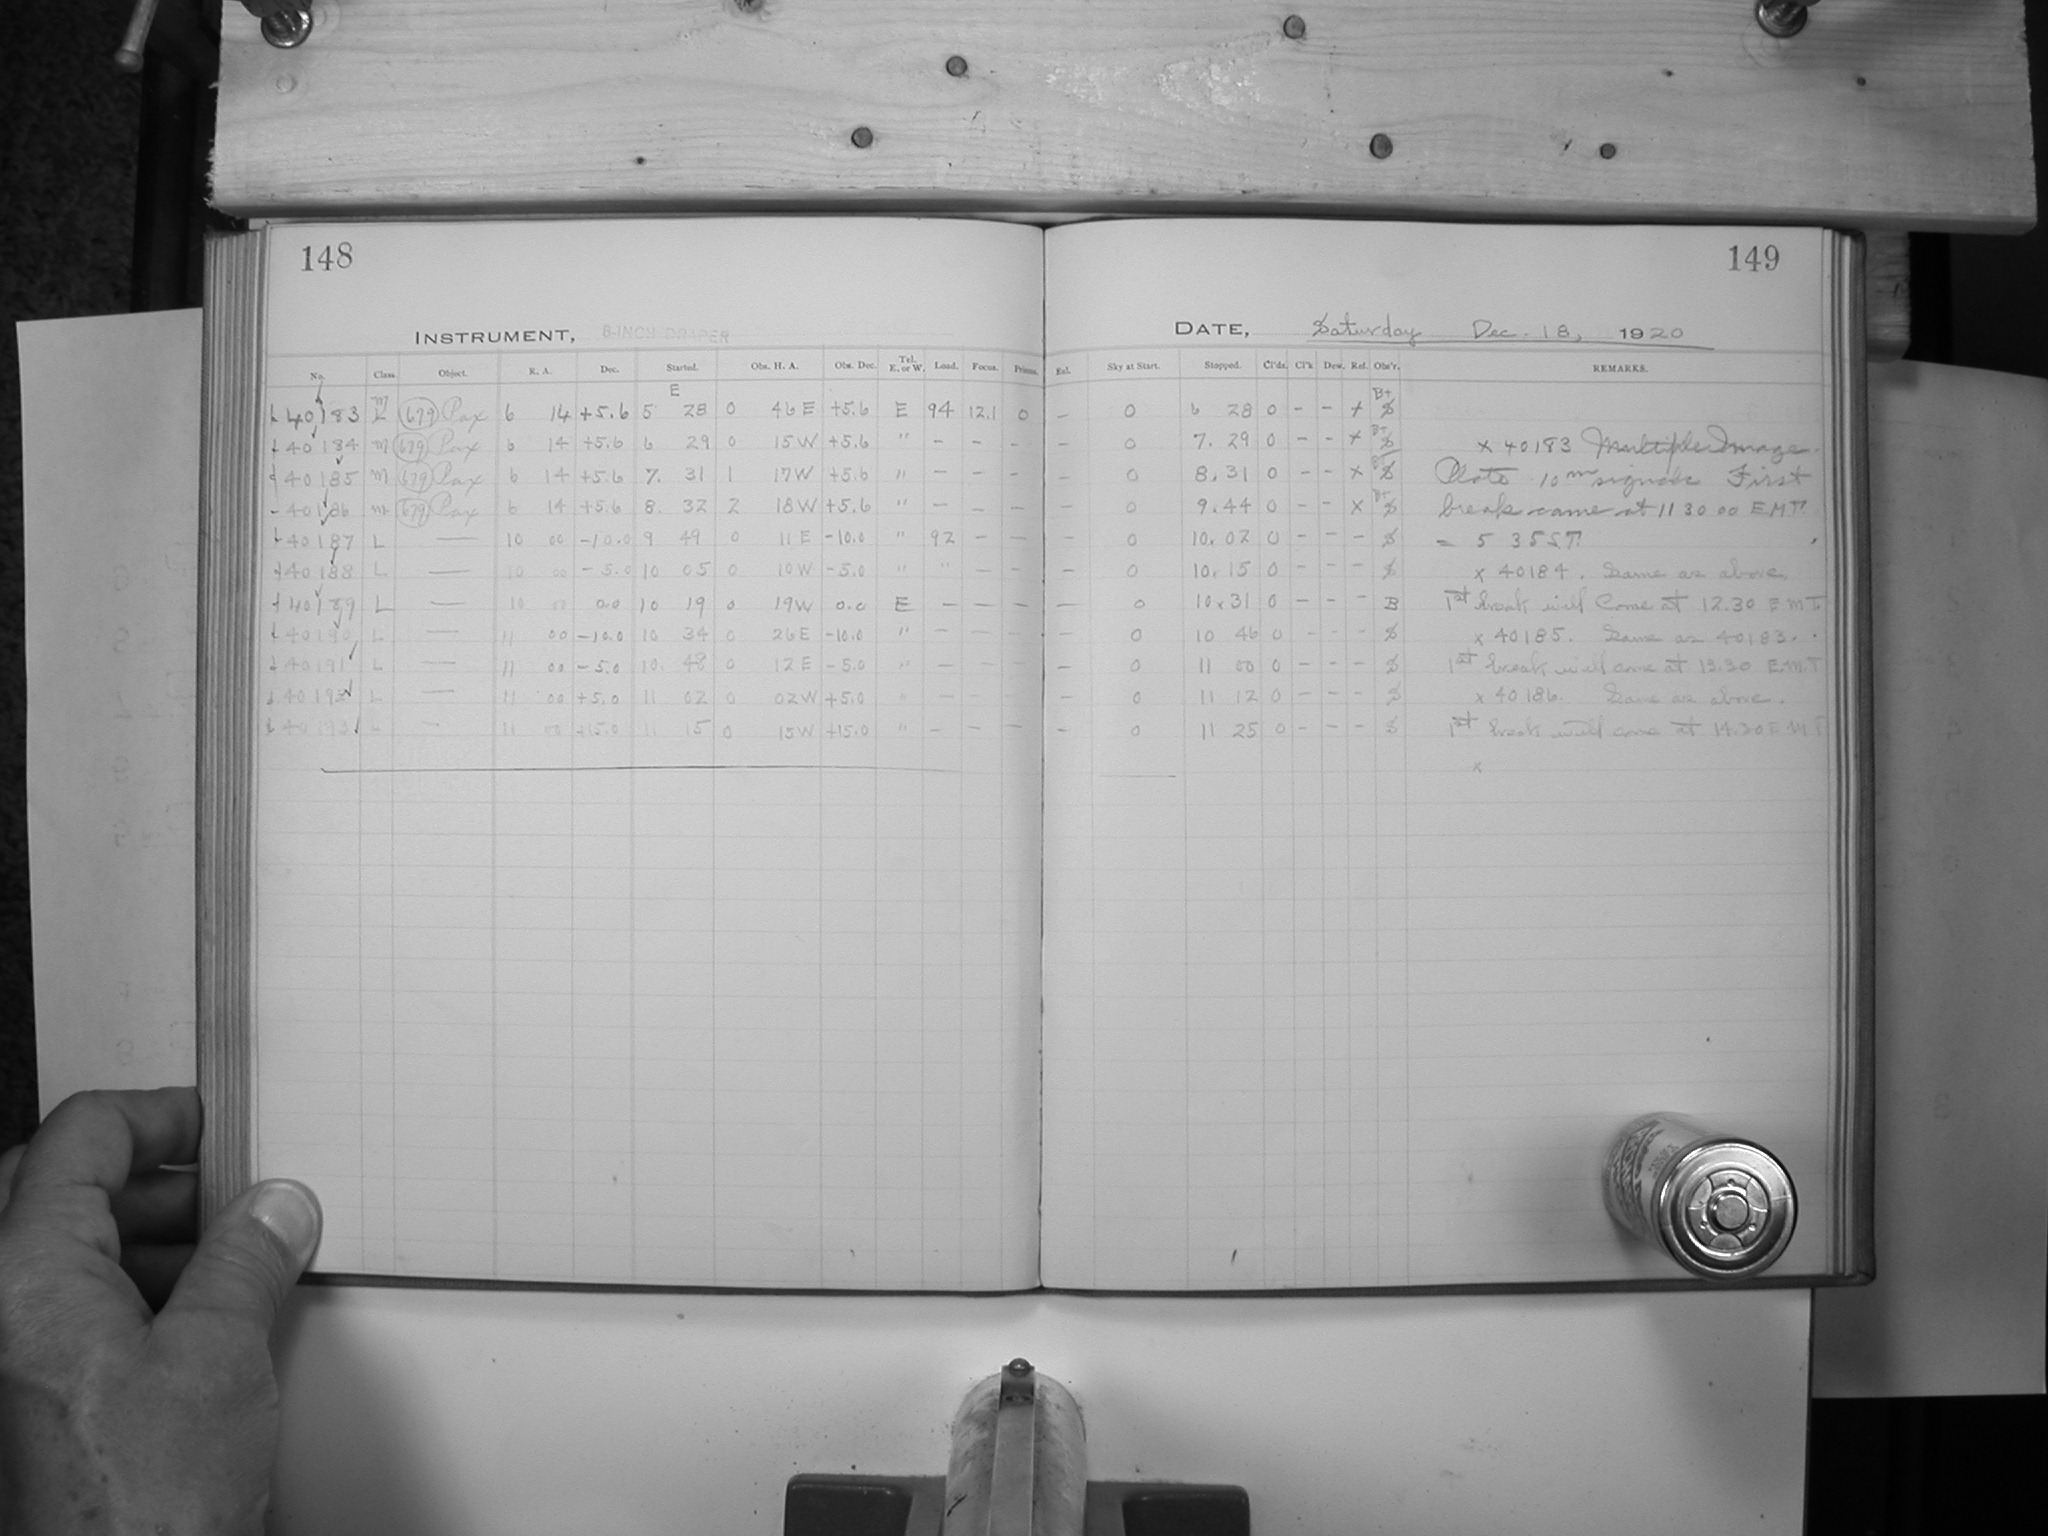 148
149
INSTRUMENT, 8-INCH DRAPER
DATE, Saturday Dec. 18, 1920
No. Class Object. R. A. Dec. Started. Obs. H. A. Obs. Dec. Tel. E. or W. Load. Focus. Prisms. Enl. Sky at Start. Stopped. Cl'ds. Cl'k Dew. Ref. Obs'r. REMARKS.
E
L 40183 L m (679) Pax 6 14 +5.6 5 28 0 46 E +5.6 E 94 12.1 0 – 0 6 28 0 – – x B+ S
L 40184 m (679) Pax 6 14 +5.6 6 29 0 15 W +5.6 " – – – – 0 7. 29 0 – – x B+ S x 40183 Multiple Image
40185 m (679) Pax 6 14 +5.6 7. 31 1 17 W +5.6 " – – – – 0 8. 31 0 – – x B+ S Plate 10m signals First
40186 m (679) Pax 6 14 +5.6 8. 32 2 18 W +5.6 " – – – – 0 9. 44 0 – – x B+ S break came at 11 30 00 E.M.T.
L 40187 L — 10 00 -10.0 9 49 0 11 E -10.0 " 92 – – – 0 10. 02 0 – – – S = 5 35 S.T.
40188 L — 10 00 -5.0 10 05 0 10 W -5.0 " " – – – 0 10. 15 0 – – – S x 40184. Same as above.
40189 L — 10 00 0.0 10 19 0 19 W 0.0 E – – – – 0 10 31 0 – – – B 1st break will come at 12.30 E.M.T.
40190 L — 11 00 -10.0 10 34 0 26 E -10.0 " – – – – 0 10 46 0 – – – S x 40185. Same as 40183.
40191 L — 11 00 -5.0 10. 48 0 12 E -5.0 " – – – – 0 11 00 0 – – – S 1st break will come at 13.30 E.M.T
40192 L — 11 00 +5.0 11 02 0 02 W +5.0 " – – – – 0 11 12 0 – – – S x 40186. Same as above.
40193 L — 11 00 +15.0 11 15 0 15 W +15.0 " – – – – 0 11 25 0 – – – S 1st break will come at 14.30 E.M.T
x